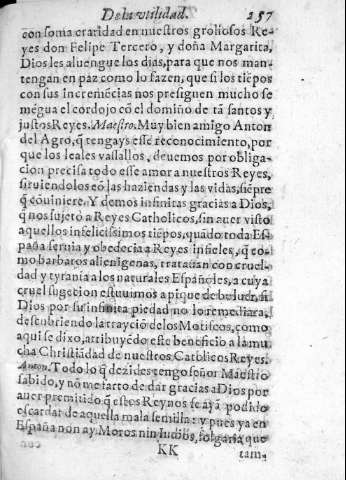 De la vtilidad. 257
con soma craridad en nuestros groliosos Re-
yes don Felipe Tercero, y doña Margarita,
Dios les aluengue los dias, para que nos man-
tengan en paz como lo fazen, que si los tiēpos
con sus incremēcias nos presiguen mucho se
mēgua el cordojo cō el domiño de tā santos y
justos Reyes. Maestro. Muy bien amigo Anton
del Agro, q̃ tengays esse reconocimiento, por
que los leales vassallos, deuemos por obliga-
cion precisa todo esse amor a nuestros Reyes,
siruiendolos cō las haziendas y las vidas, siēpre
q̃ cōuiniere. Y demos infinitas gracias a Dios,
q̃ nos sujetò a Reyes Catholicos, sin auer visto
aquellos infelicissimos tiēpos, quādo toda Es-
paña seruia y obedecia a Reyes infieles, q̃ co-
mo barbaros alienigenas, tratauan con cruel-
dad y tyrania a los naturales Españoles, a cuya
cruel sugecion estuuimos a pique de boluer, si
Dios por su infinita piedad no lo remediara,
descubriendo la trayciō de los Moriscos, como
aqui se dixo, atribuyēdo este beneficio a la mu-
cha Christiādad de nuestros Catolicos Reyes.
Anton. Todo lo q̃ dezides tengo señor Maestro
sabido, y nō me farto de dar gracias a Dios por
auer premitido q̃ estos Reynos se ayā podido
escardar de aquella mala semilla: y pues ya en
España non ay Moros nin Iudios, folgaria que
KK tam-